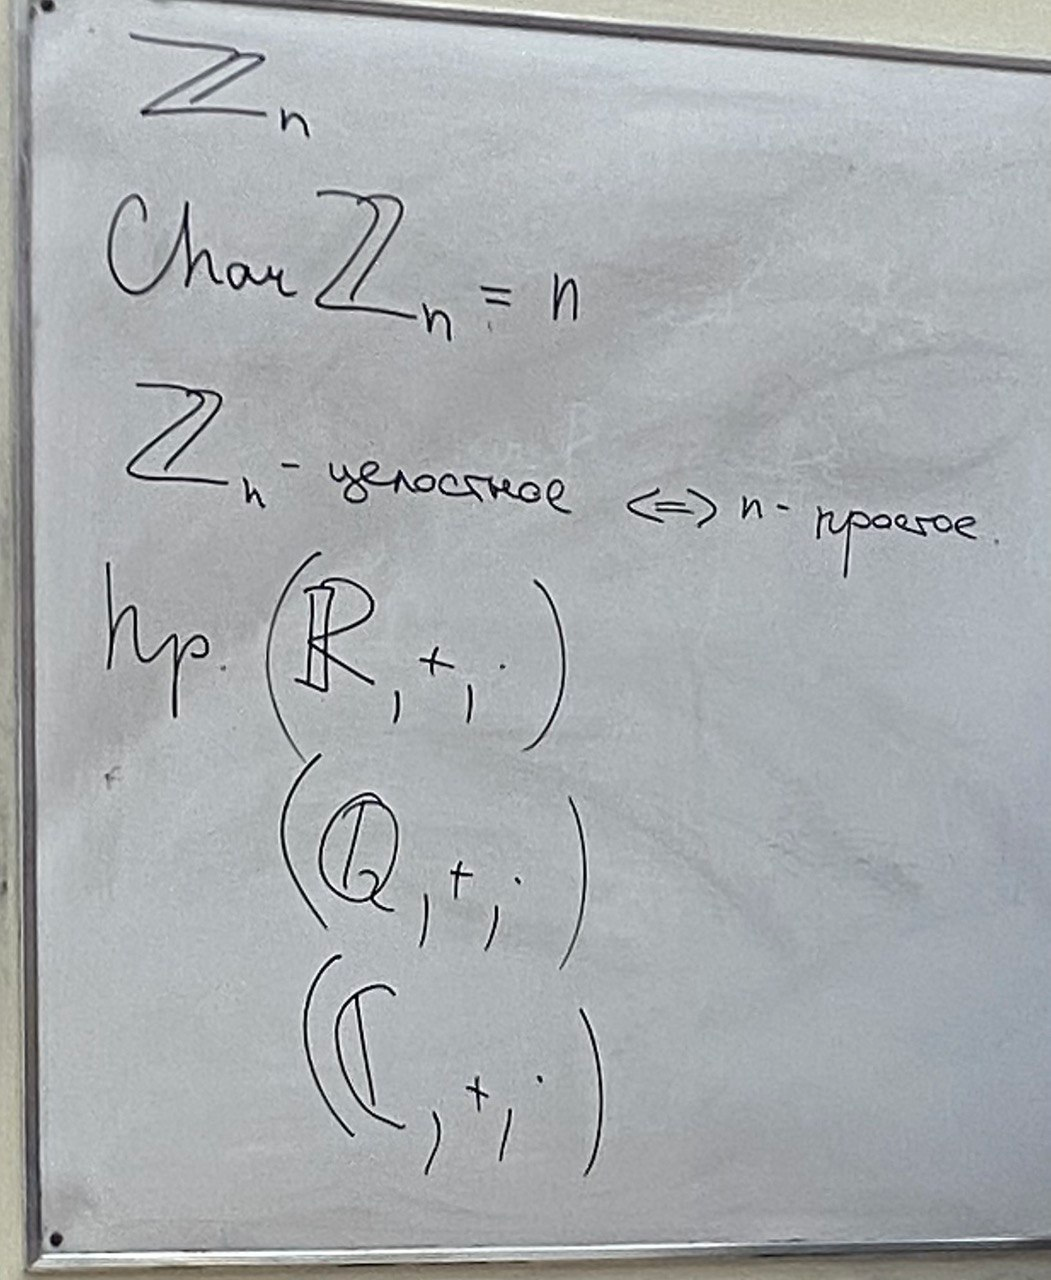 ℤₙ
Char ℤₙ = n
ℤₙ - целостное <=> n - простое.
Пр. (ℝ, +, ·)
(ℚ, +, ·)
(ℂ, +, ·)